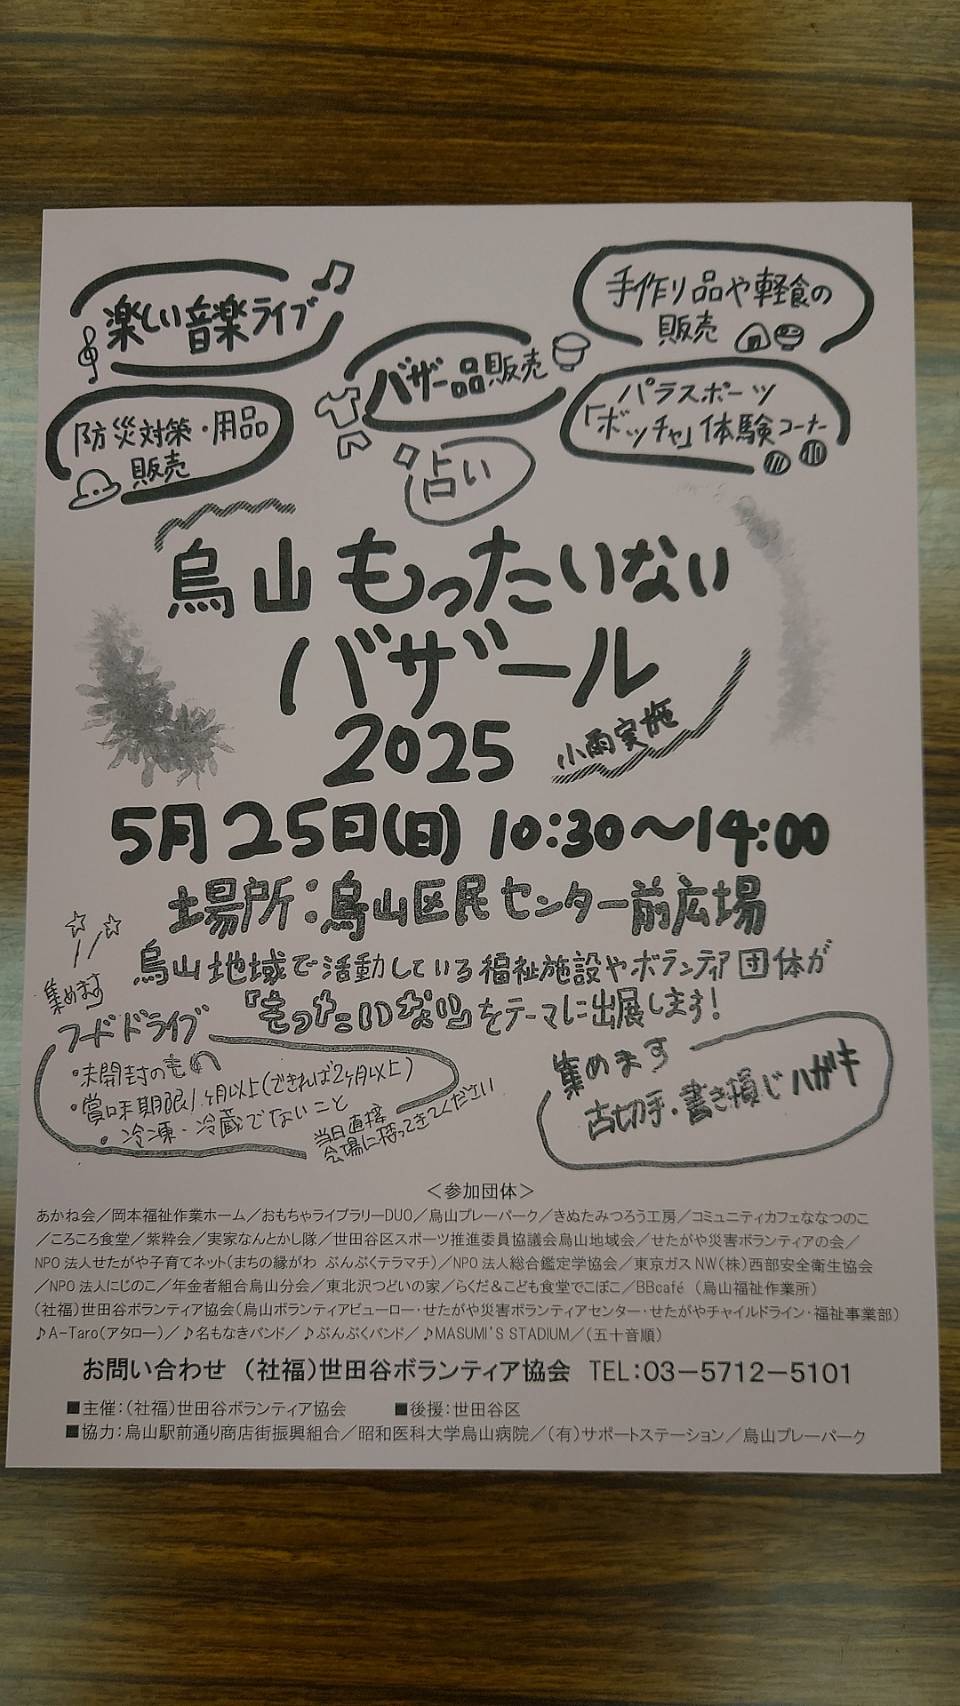 楽しい音楽ライブ
手作り品や軽食の
販売
バザー品販売
パラスポーツ
「ボッチャ」体験コーナー
防災対策・用品
販売
占い
烏山もったいない
バザール
2025
小雨実施
5月25日(日) 10:30〜14:00
場所：烏山区民センター前広場
烏山地域で活動している福祉施設やボランティア団体が
『もったいない』をテーマに出展します！
集めます
フードドライブ
・未開封のもの
・賞味期限1ヶ月以上(できれば2ヶ月以上)
・冷凍・冷蔵でないこと
当日直接
会場に持ってきてください
集めます
古切手・書き損じハガキ
＜参加団体＞
あかね会／岡本福祉作業ホーム／おもちゃライブラリーDUO／烏山プレーパーク／きぬたみつろう工房／コミュニティカフェななつのこ
／ころころ食堂／紫粋会／実家なんとかし隊／世田谷区スポーツ推進委員協議会烏山地域会／せたがや災害ボランティアの会／
NPO法人せたがや子育てネット(まちの縁がわ ぶんぶくテラマチ)／NPO法人総合鑑定学協会／東京ガスNW(株)西部安全衛生協会
／NPO法人にじのこ／年金者組合烏山分会／東北沢つどいの家／らくだ＆こども食堂でこぼこ／BBcafé (烏山福祉作業所)
(社福)世田谷ボランティア協会(烏山ボランティアビューロー・せたがや災害ボランティアセンター・せたがやチャイルドライン・福祉事業部)
♪A-Taro(アタロー)／♪名もなきバンド／♪ぶんぶくバンド／♪MASUMI'S STADIUM／(五十音順)
お問い合わせ (社福)世田谷ボランティア協会 TEL:03－5712－5101
■主催：(社福)世田谷ボランティア協会 ■後援：世田谷区
■協力：烏山駅前通り商店街振興組合／昭和医科大学烏山病院／(有)サポートステーション／烏山プレーパーク